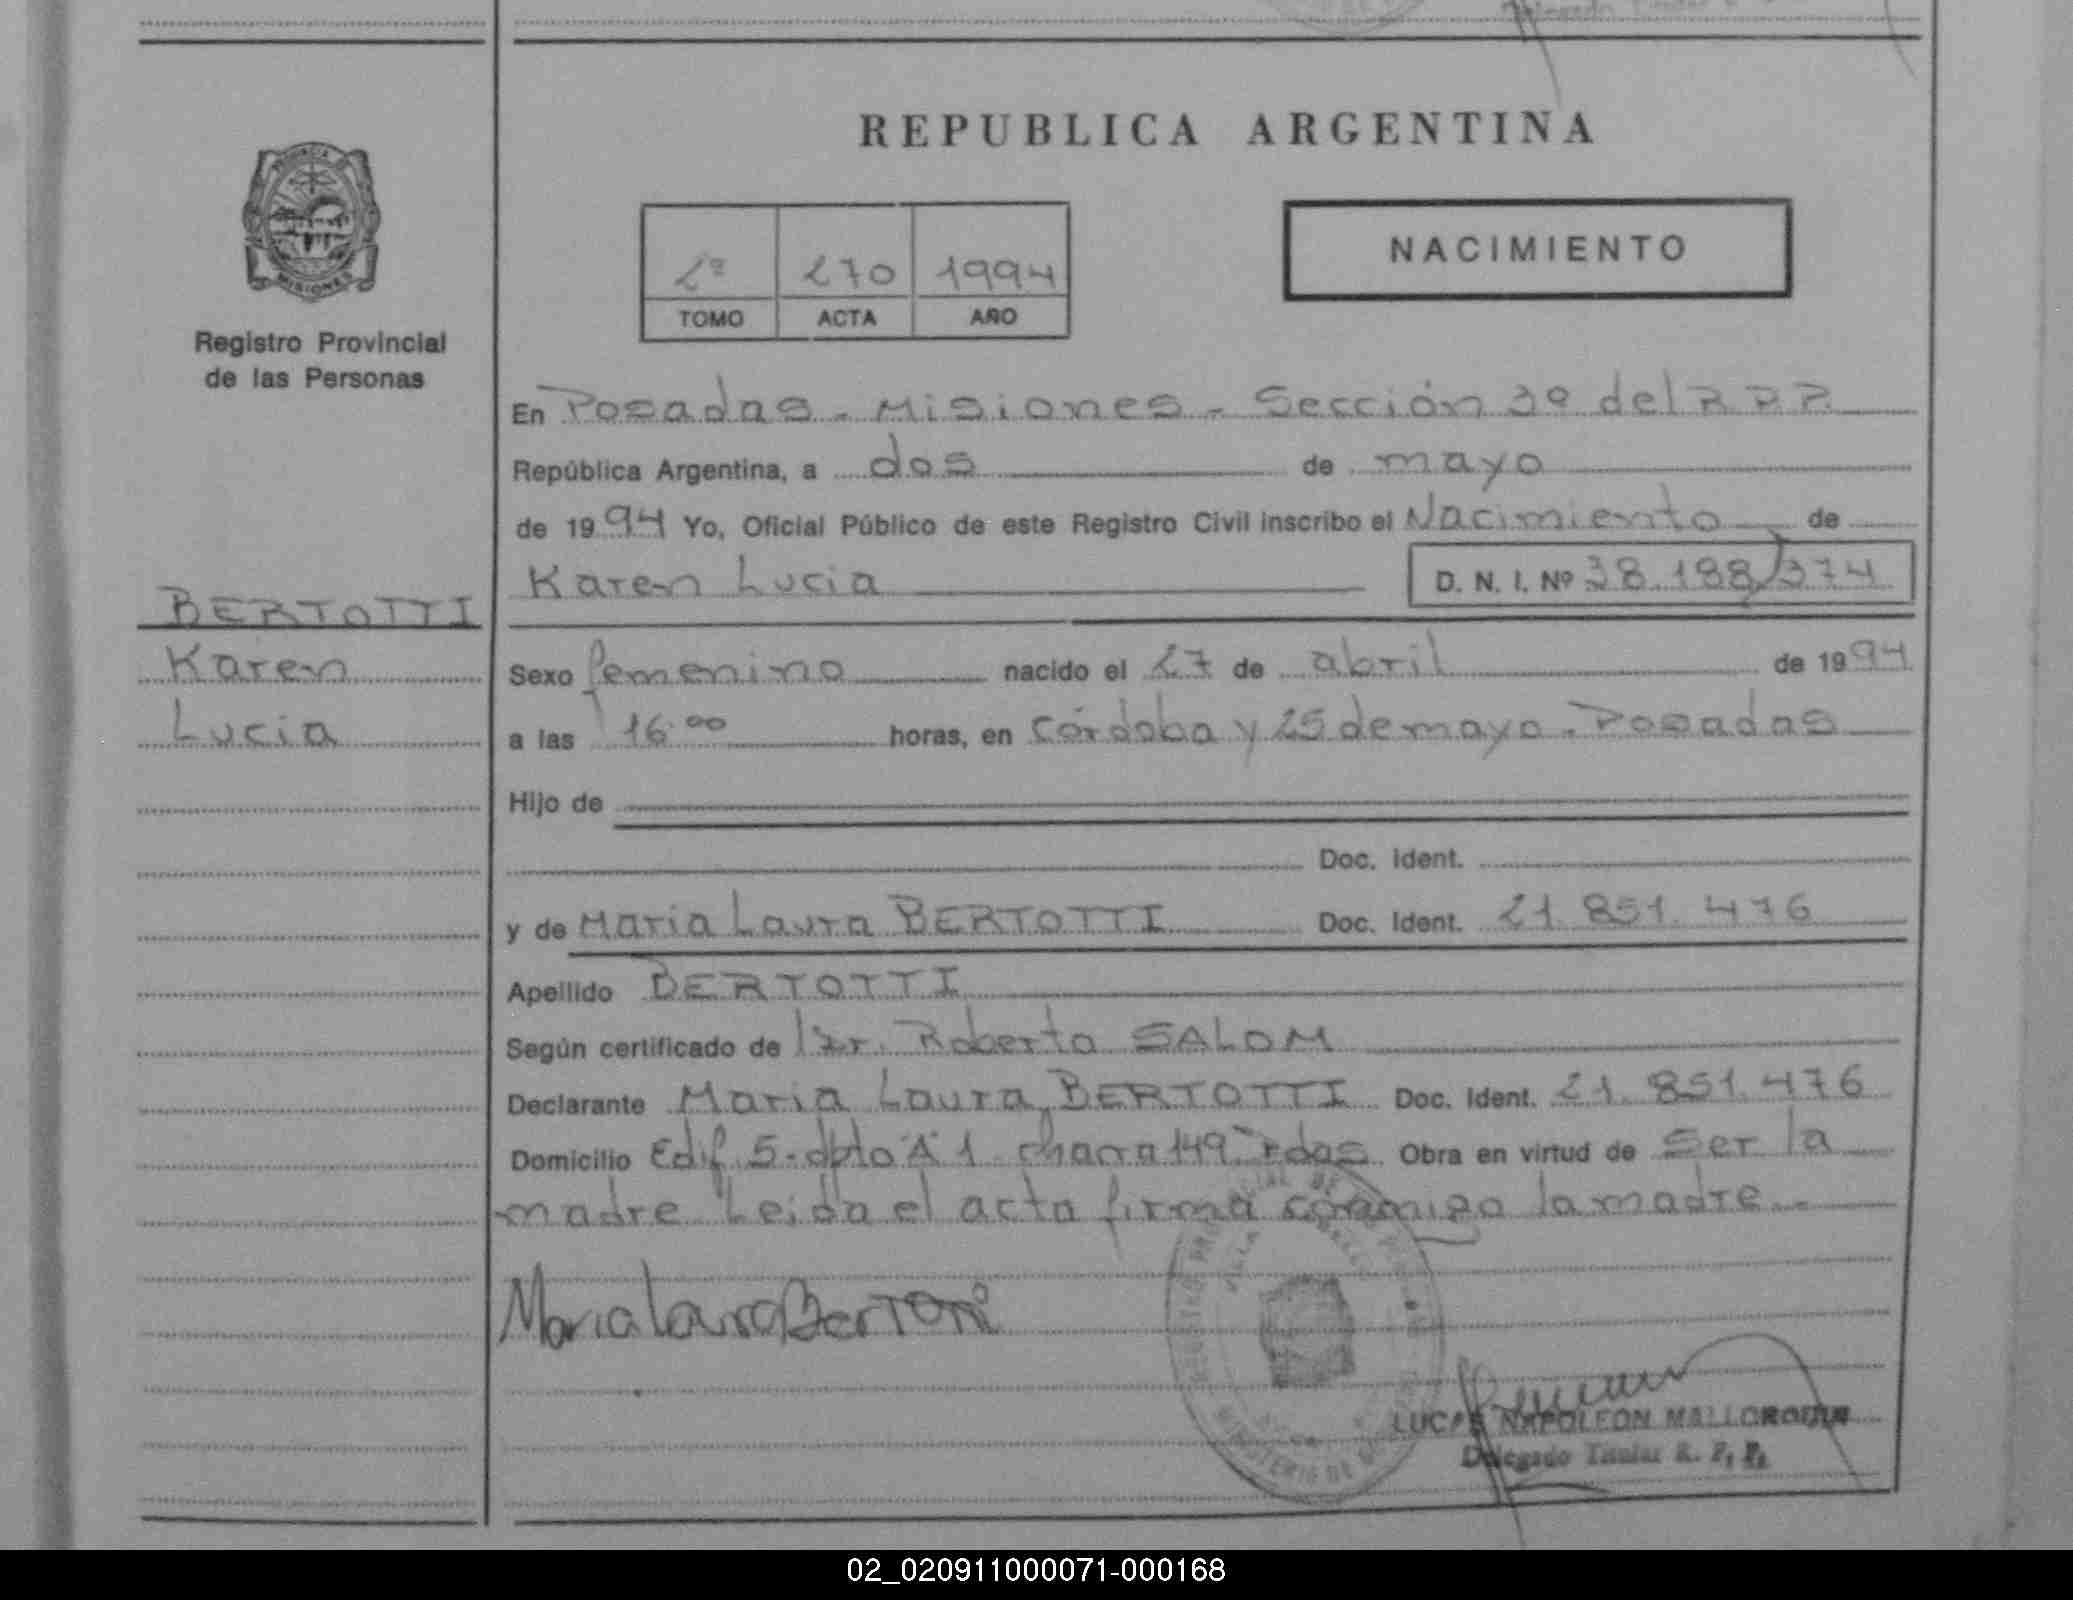 REPUBLICA ARGENTINA
PROVINCIA
MISIONES
Registro Provincial
de las Personas
2º 270 1994
TOMO ACTA AÑO
NACIMIENTO
En Posadas - Misiones - Sección 3º del R.P.P.
República Argentina, a dos de mayo
de 1994 Yo, Oficial Público de este Registro Civil inscribo el Nacimiento de
Karen Lucia D. N. I. Nº 38.188.374
BERTOTTI
Karen
Lucia
Sexo femenino nacido el 27 de abril de 1994
a las 16:00 horas, en Córdoba y 25 de mayo - Posadas
Hijo de
Doc. Ident.
y de Maria Laura BERTOTTI Doc. Ident. 21.851.476
Apellido BERTOTTI
Según certificado de Dr. Roberto SALOM
Declarante Maria Laura BERTOTTI Doc. Ident. 21.851.476
Domicilio Edif. 5 - dpto "A" 1 chacra 149 - Pdas Obra en virtud de ser la
madre Leida el acta firma conmigo la madre.-
Maria Laura Bertotti
LUCAS NAPOLEON MALLORQUIN
Delegado Titular R. P. P.
02_020911000071-000168